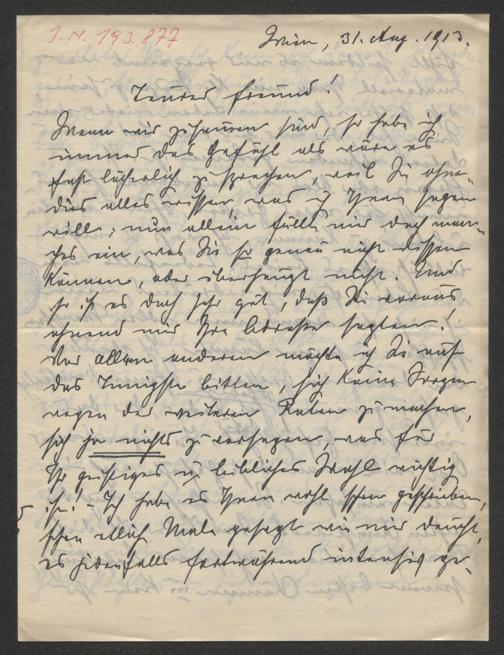 I.N. 193.877
Wien, 31. Aug. 1913.
Teurer Freund!
Wenn wir zusammen sind, so habe ich
immer das Gefühl als wäre es
fast lächerlich zu sprechen, weil Sie ohne-
dies alles wissen was ich Ihnen sagen
will; nun allein fällt mir doch man-
ches ein, was Sie so genau nicht wissen
können, oder überhaupt nicht. Und
so ist es doch sehr gut, daß Sie voraus
ahnend mir Ihre Adresse sagten!
Vor allem anderen möchte ich Sie auf
das Innigste bitten, sich keine Sorgen
wegen der weiteren Raten zu machen,
sich ja nichts zu versagen, was für
Ihr geistiges u. leibliches Wohl wichtig
ist! – Ich habe es Ihnen wohl schon geschrieben,
schon etliche Male gesagt wie mir deucht,
es jedenfalls fortwährend intensiv ge-